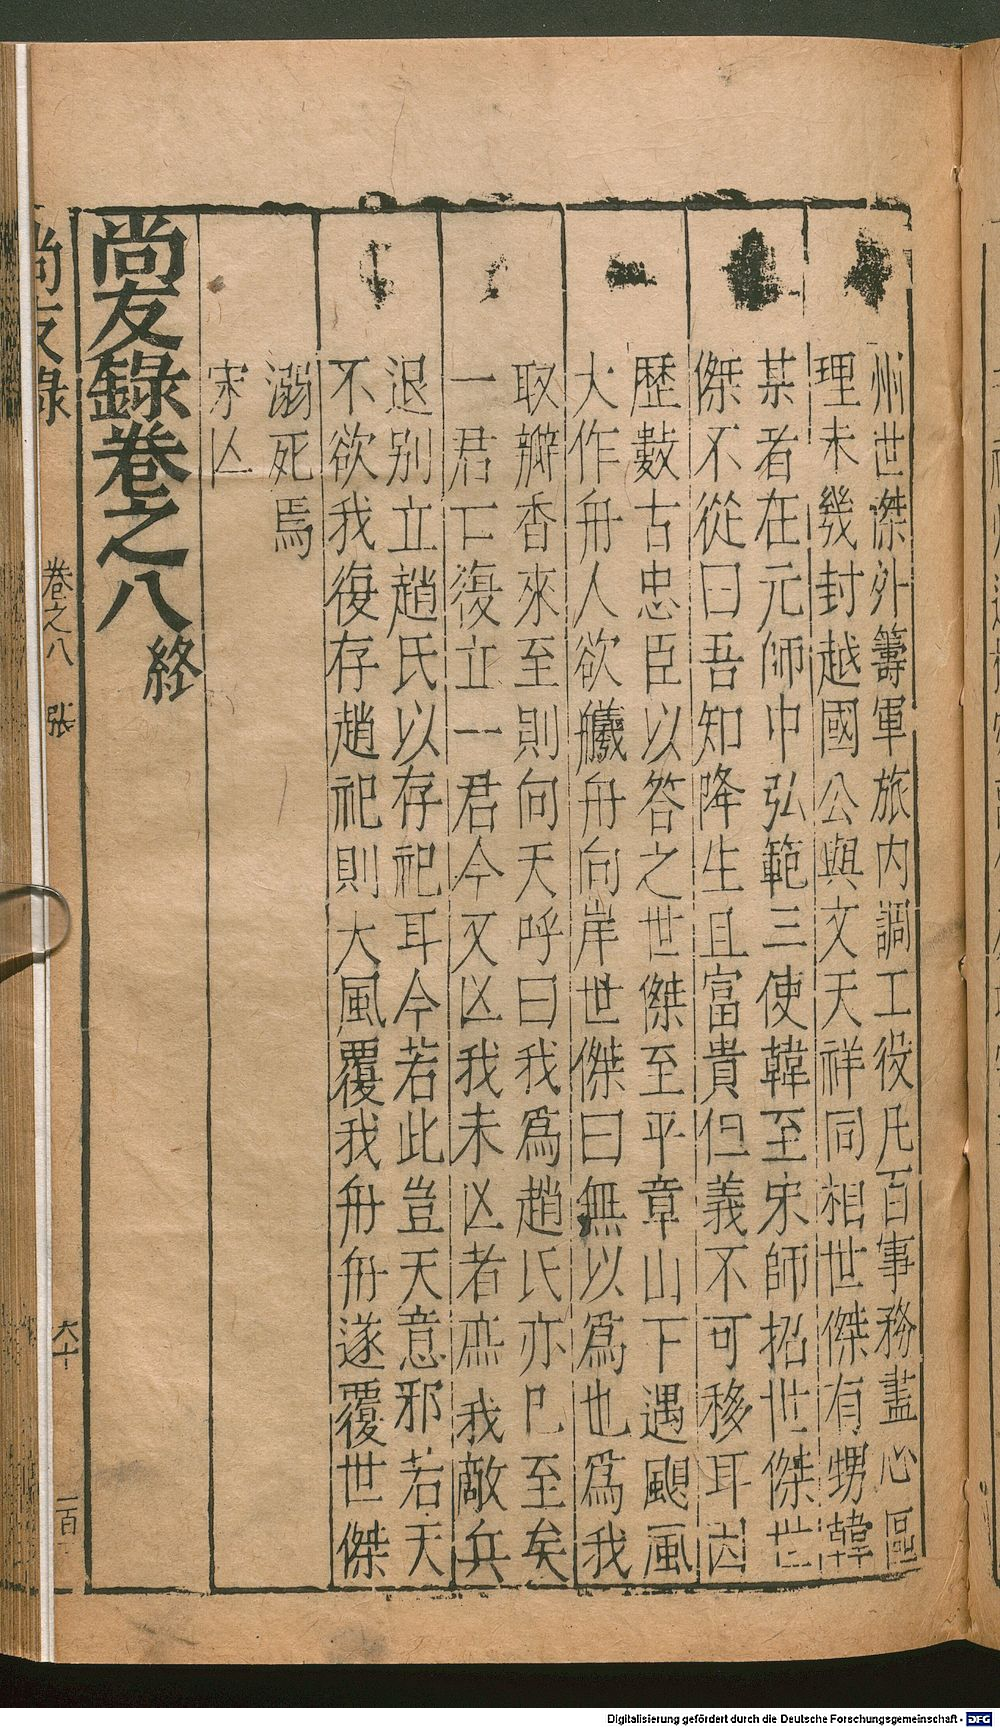 州世傑外籌軍旅內調工役凡百事務盡心區
理未幾封越國公與文天祥同相世傑有甥韓
某者在元師中弘範三使韓至宋師招世傑世
傑不從曰吾知降生且富貴但義不可移耳因
歷數古忠臣以答之世傑至平章山下遇颶風
大作舟人欲艤舟向岸世傑曰無以爲也爲我
取瓣香來至則向天呼曰我爲趙氏亦已至矣
一君亡復立一君今又亡我未亡者庶我敵兵
退别立趙氏以存祀耳今若此豈天意邪若天
不欲我復存趙祀則大風覆我舟舟遂覆世傑
溺死焉
宋亡
尚友錄卷之八終
尚友錄 卷之八 張 六十 一百
Digitalisierung gefördert durch die Deutsche Forschungsgemeinschaft - DFG